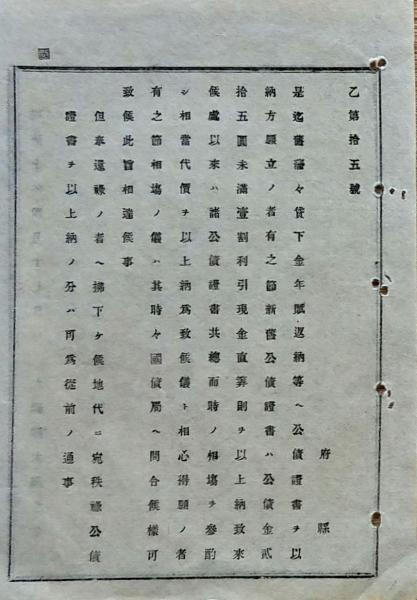 乙第拾五號
府縣
是迄舊藩々貸下金年賦返納等ヘ公債證書ヲ以
納方願立ノ者有之節新舊公債證書ハ公債金貳
拾五圓未滿壹割利引現金直等則ヲ以上納致來
候處以來ハ諸公債證書共總而時ノ相塲ヲ參酌
シ相當代價ヲ以上納爲致候儀ト相心得願ノ者
有之節相塲ノ儀ハ其時々國債局ヘ問合候樣可
致候此旨相達候事
但奉還祿ノ者ヘ拂下ケ候地代ニ宛秩祿公債
證書ヲ以上納ノ分ハ可爲從前ノ通事